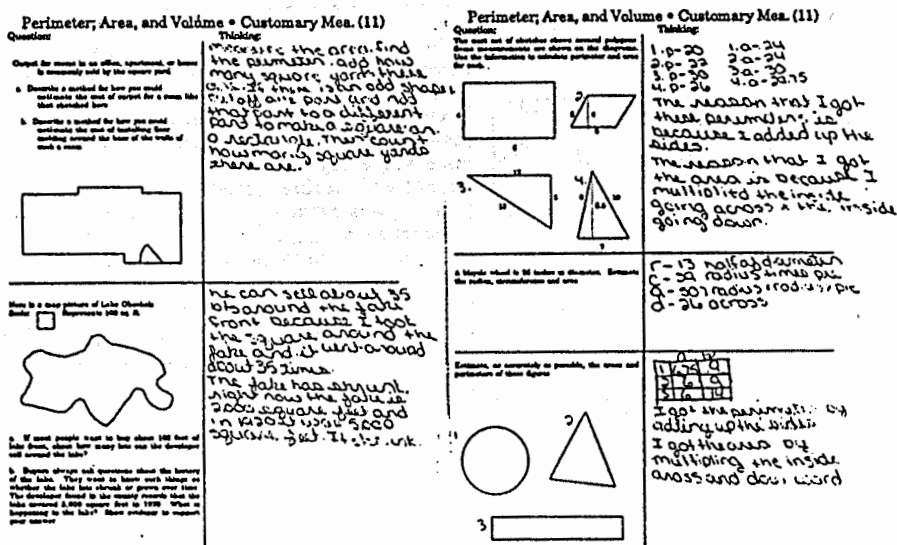 Perimeter, Area, and Volume • Customary Mea. (11)
Question:
Thinking:
Carpet for rooms in an office, apartment, or house
is commonly sold by the square yard
a. Describe a method for how you could
estimate the cost of carpet for a room like
that sketched here
b. Describe a method for how you could
estimate the cost of installing
molding around the base of the walls of
such a room
measure the area. find
the perimeter. add how
many square yards there
is. If there is an odd shape
cut off one part and add
that part to a different
part to make a square or
a rectangle. Then count
how many square yards
there are.
Here is a map picture of Lake
Scale: Represents 100 sq. ft.
a. If most people want to buy about 100 feet of
lake front, about how many lots can the developer
sell around the lake?
b. Buyers always ask questions about the history
of the lake. They want to know such things as
whether the lake has shrunk or grown over time
The developer found in the county records that the
lake covered 5,000 square feet in 1920 What is
happening to the lake? Show evidence to support
your answer
he can sell about 35
lots around the lake
front because I took
the square around the
lake and it went around
about 35 times.
The lake has shrunk.
right now the lake is
square feet and
in it was 5000
square feet. It shrunk.
Perimeter, Area, and Volume • Customary Mea. (11)
Question:
Thinking:
The next set of sketches shows polygons
Some measurements are shown on the diagrams.
Use the information to calculate perimeter and area
for each.
2.
3.
4.
1. p-20
2. p-22
3. p-30
4. p-26
1. a-24
2. a-24
3. a-30
4. a-22.75
The reason that I got
these perimeters is
because I added up the
sides.
The reason that I got
the area is because I
multiplied the inside
going across x the inside
going down.
A bicycle wheel is 26 inches in diameter. Estimate
the radius, circumference and area
r-13 half of diameter
radius times pie
a-507 radius x radius x pie
d-26 across
Estimate, as accurately as possible, the areas and
perimeters of these figures
2
3
I got the perimeter by
adding up the sides
I got the area by
multipling the inside
across and down ward